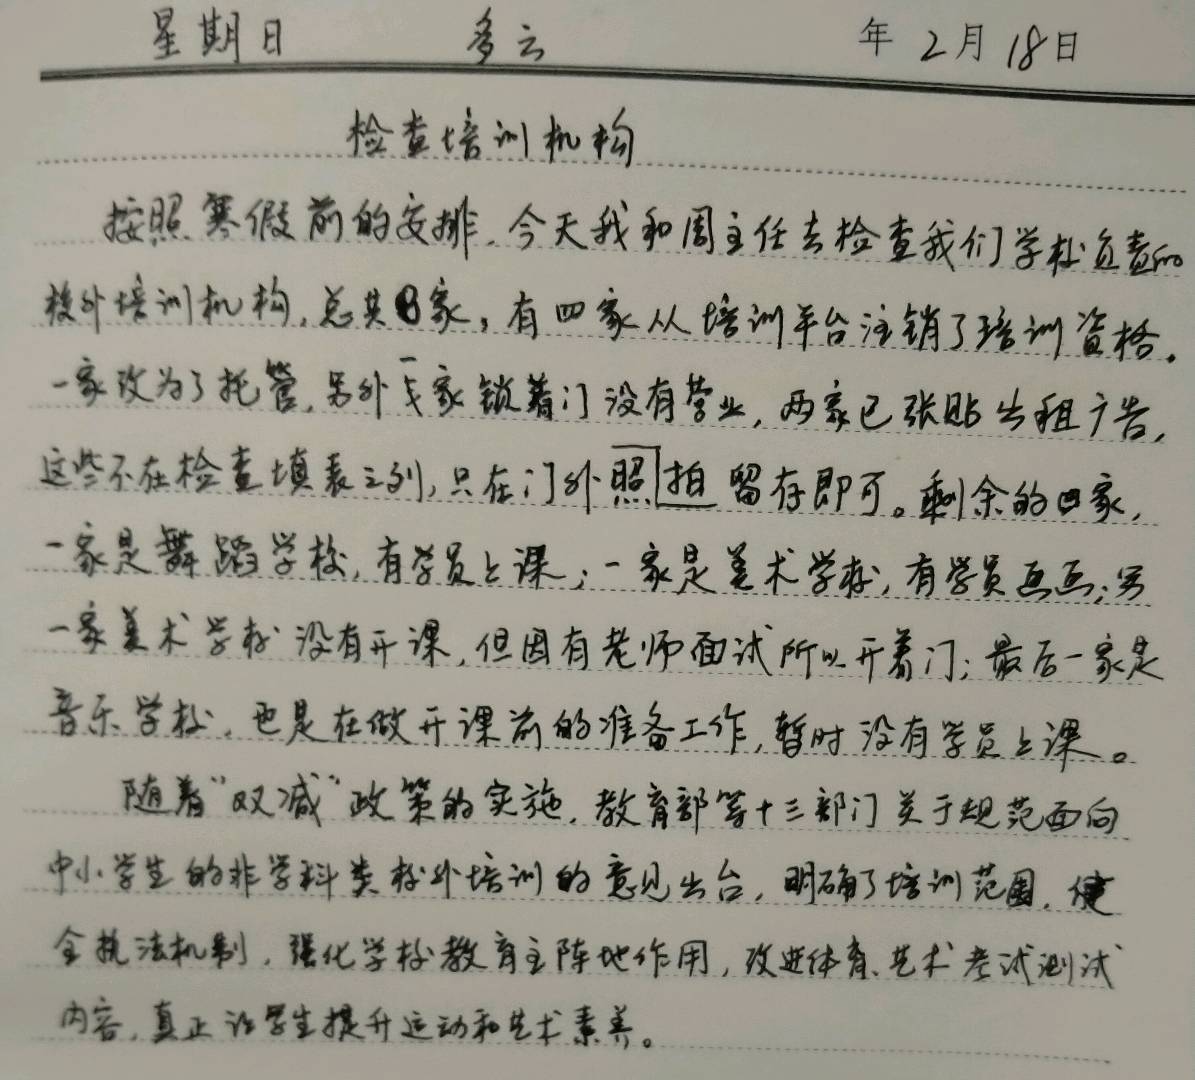 星期日 多云 年2月18日
检查培训机构
按照寒假前的安排,今天我和周主任去检查我们学校负责的
校外培训机构,总共8家,有四家从培训平台注销了培训资格。
一家改为了托管,另外一家锁着门没有营业,两家已张贴出租广告,
这些不在检查填表之列,只在门外照拍留存即可。剩余的四家,
一家是舞蹈学校,有学员上课;一家是美术学校,有学员画画;另
一家美术学校没有开课,但因有老师面试所以开着门;最后一家是
音乐学校,也是在做开课前的准备工作,暂时没有学员上课。
随着“双减”政策的实施,教育部等十三部门关于规范面向
中小学生的非学科类校外培训的意见出台,明确了培训范围,健
全执法机制,强化学校教育主阵地作用,改进体育、艺术考试测试
内容,真正让学生提升运动和艺术素养。